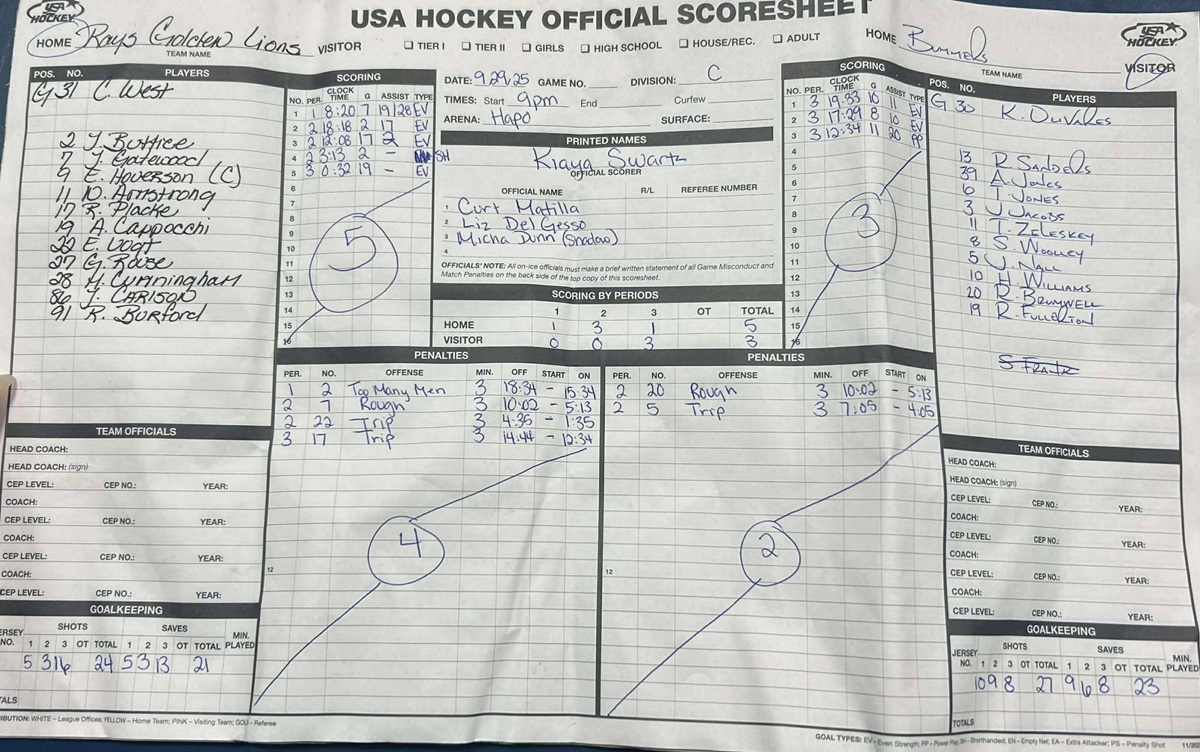 USA HOCKEY OFFICIAL SCORESHEET
USA HOCKEY
HOME Rays Golden Lions VISITOR
TEAM NAME
☐ TIER I ☐ TIER II ☐ GIRLS ☐ HIGH SCHOOL ☐ HOUSE/REC. ☐ ADULT
HOME Bummers VISITOR
TEAM NAME
USA HOCKEY
POS. NO. PLAYERS
G 31 C. West
2 J. Buttice
7 J. Gatewood
9 E. Hoverson (C)
11 D. Armstrong
17 R. Placke
19 A. Cappocchi
22 E. Vogt
27 G. Rouse
28 M. Cunningham
86 J. Carlson
91 R. Burford
SCORING
NO. PER. CLOCK TIME G ASSIST TYPE
1 1 8:20 7 19/28 EV
2 2 18:18 2 17 EV
3 2 12:08 17 2 EV
4 2 3:13 2 - SH
5 3 0:32 19 - EV
6
7
8
9
10
11
12
13
14
15
16
5
DATE: 9.29.25 GAME NO. DIVISION: C
TIMES: Start 9pm End Curfew
ARENA: Hapo SURFACE:
PRINTED NAMES
Kiaya Swartz
OFFICIAL SCORER
OFFICIAL NAME R/L REFEREE NUMBER
1 Curt Matilla
2 Liz Del Gesso
3 Micha Dunn (Shadow)
4
OFFICIALS' NOTE: All on-ice officials must make a brief written statement of all Game Misconduct and
Match Penalties on the back side of the top copy of this scoresheet.
SCORING BY PERIODS
1 2 3 OT TOTAL
HOME 1 3 1 5
VISITOR 0 0 3 3
SCORING
NO. PER. CLOCK TIME G ASSIST TYPE
1 3 19:33 10 11 EV
2 3 17:29 8 10 EV
3 3 12:34 11 20 PP
4
5
6
7
8
9
10
11
12
13
14
15
16
3
POS. NO. PLAYERS
G 30
13 R. Sandels
39 A. Jones
6 T. Jones
3 J. Jacobs
11 T. Zeleskey
8 S. Woolley
5 J. Nall
10 H. Williams
20 R. Brumwell
19 R. Fullerton
PENALTIES
PER. NO. OFFENSE MIN. OFF START ON
1 2 Too Many Men 3 18:34 - 15:34
2 7 Rough 3 10:02 - 5:13
2 22 Trip 3 4:35 - 1:35
3 17 Trip 3 14:44 - 12:34
12
4
PENALTIES
PER. NO. OFFENSE MIN. OFF START ON
2 20 Rough 3 10:02 - 5:13
2 5 Trip 3 7:05 - 4:05
12
2
TEAM OFFICIALS
HEAD COACH:
HEAD COACH: (sign)
CEP LEVEL: CEP NO.: YEAR:
COACH:
CEP LEVEL: CEP NO.: YEAR:
COACH:
CEP LEVEL: CEP NO.: YEAR:
COACH:
CEP LEVEL: CEP NO.: YEAR:
GOALKEEPING
SHOTS SAVES
JERSEY NO. 1 2 3 OT TOTAL 1 2 3 OT TOTAL MIN. PLAYED
5 3 16 24 5 3 13 21
TEAM OFFICIALS
HEAD COACH:
HEAD COACH: (sign)
CEP LEVEL: CEP NO.: YEAR:
COACH:
CEP LEVEL: CEP NO.: YEAR:
COACH:
CEP LEVEL: CEP NO.: YEAR:
COACH:
CEP LEVEL: CEP NO.: YEAR:
GOALKEEPING
SHOTS SAVES
JERSEY NO. 1 2 3 OT TOTAL 1 2 3 OT TOTAL MIN. PLAYED
10 9 8 27 9 6 8 23
TOTALS
WHITE – League Offices; YELLOW – Home Team; PINK – Visiting Team; GOLD – Referee
GOAL TYPES: EV – Even Strength; PP – Power Play; SH – Shorthanded; EN – Empty Net; EA – Extra Attacker; PS – Penalty Shot